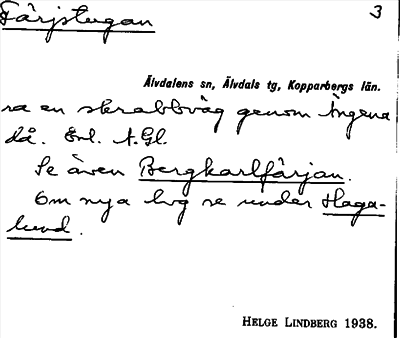 Färjstugan 3
Älvdalens sn, Älvdals tg, Kopparbergs län.
ra en skrabbväg genom Ängena
då. Enl. A.Gl.
Se även Bergkarlfärjan.
Om nya bvg se under Haga-
lund.
HELGE LINDBERG 1938.